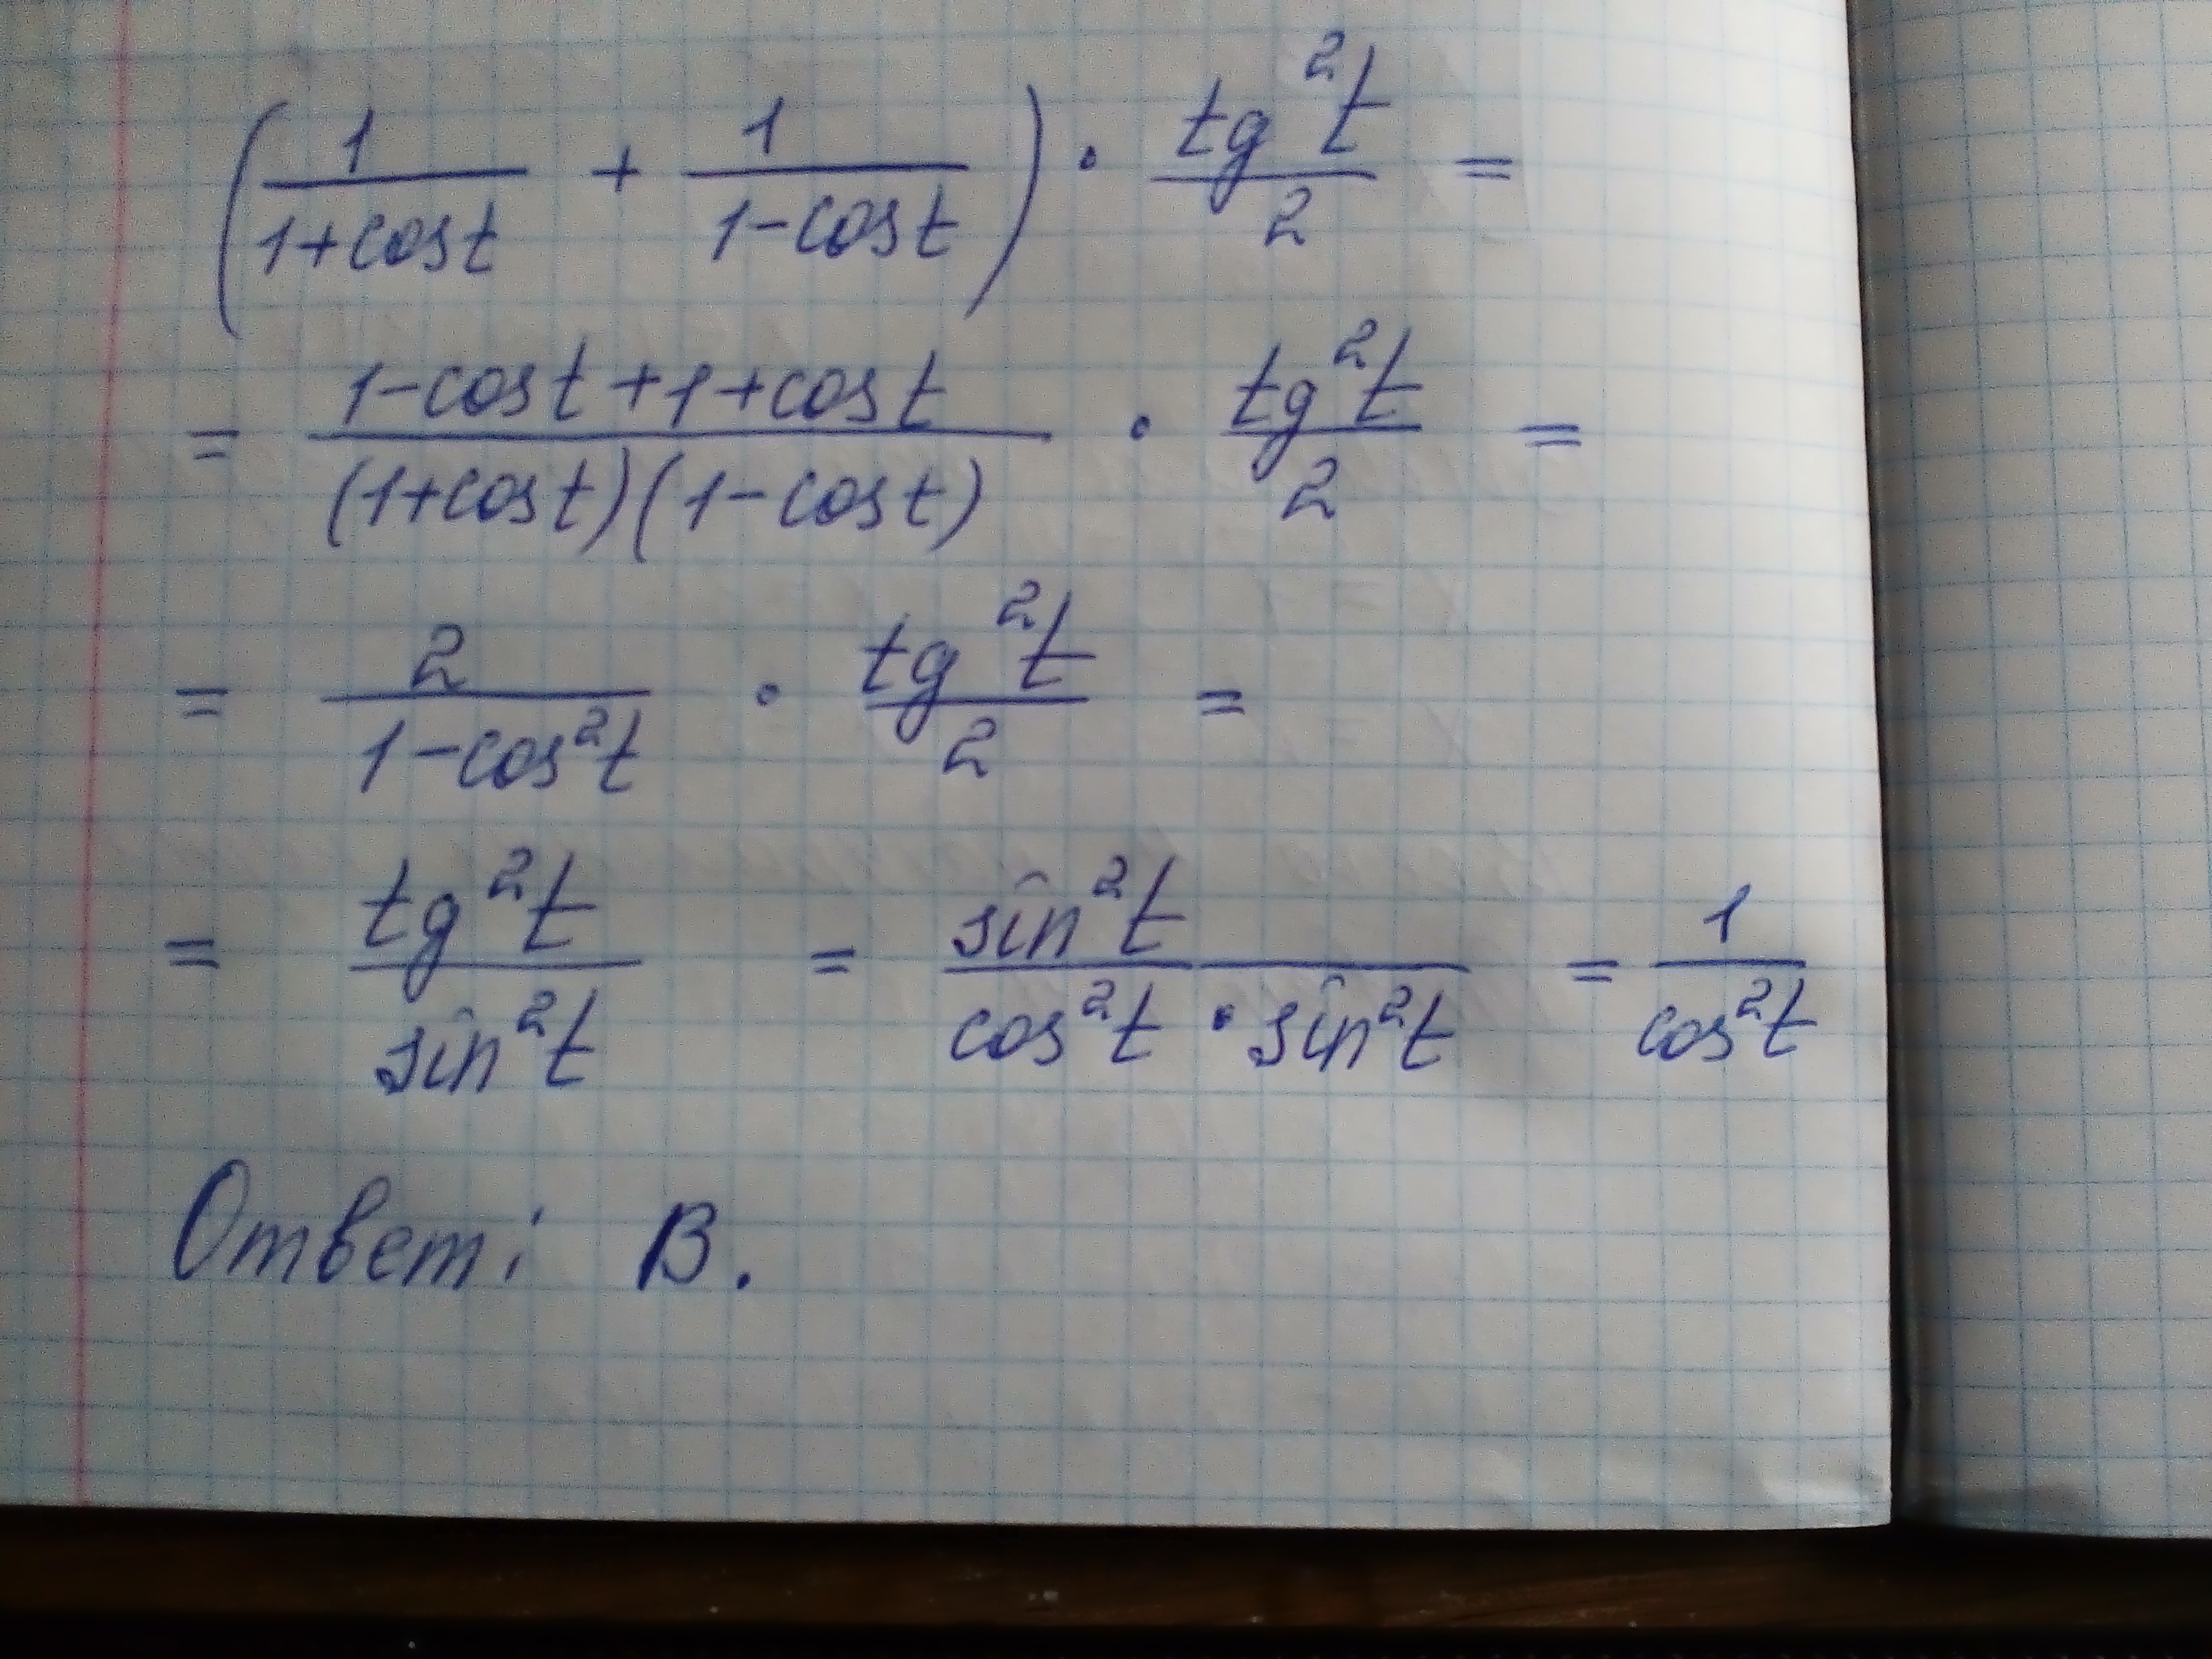 (1/(1+cost) + 1/(1-cost)) · tg²t/2 =
= (1-cost+1+cost)/((1+cost)(1-cost)) · tg²t/2 =
= 2/(1-cos²t) · tg²t/2 =
= tg²t/sin²t = sin²t/(cos²t · sin²t) = 1/cos²t
Ответ: В.